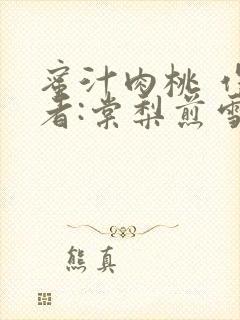 蜜汁肉桃 作
者:棠梨煎雪
熊真